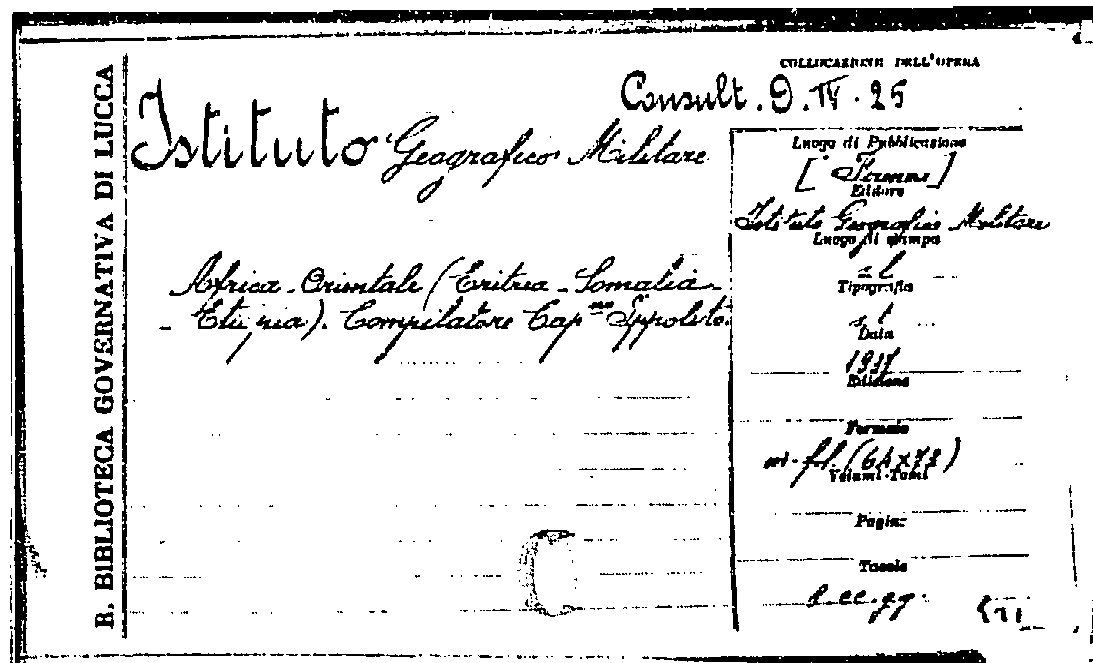 R. BIBLIOTECA GOVERNATIVA DI LUCCA
COLLOCAZIONE DELL'OPERA
Consult. D. IV. 25
Istituto Geografico Militare
Africa Orientale (Eritrea - Somalia -
- Etiopia). Compilatore Cap no Ippolito.
Luogo di Pubblicazione
[Firenze]
Editore
Istituto Geografico Militare
Luogo di stampa
s l
Tipografia
s t
Data
Edizione
Formato
(64x78)
Volumi-Tomi
Pagine
Tavole